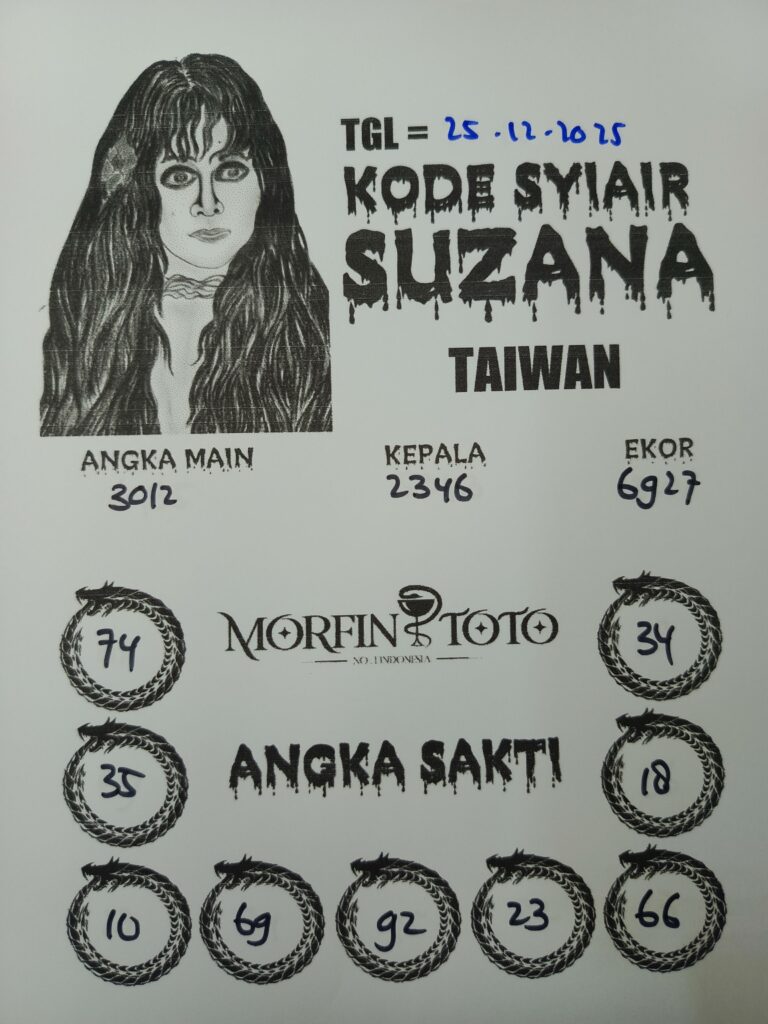 TGL = 25.12.2025
KODE SYIAIR
SUZANA
TAIWAN
ANGKA MAIN KEPALA EKOR
3012 2346 6927
74 MORFIN TOTO 34
NO.1 INDONESIA
35 ANGKA SAKTI 18
10 69 92 23 66